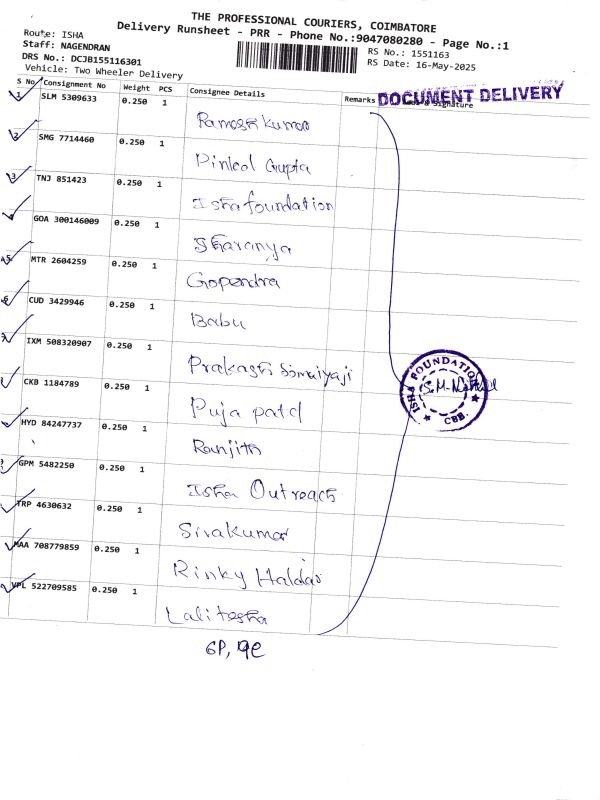 THE PROFESSIONAL COURIERS, COIMBATORE
Delivery Runsheet - PRR - Phone No.:9047080280 - Page No.:1
Route: ISHA
Staff: NAGENDRAN
DRS No.: DCJB155116301
Vehicle: Two Wheeler Delivery
RS No.: 1551163
RS Date: 16-May-2025
S No Consignment No Weight PCS Consignee Details Remarks & Signature
DOCUMENT DELIVERY
1 SLM 5309633 0.250 1 Ramesh Kumar
2 SMG 7714460 0.250 1 Pinkal Gupta
3 TNJ 851423 0.250 1 Isha foundation
4 GOA 300146009 0.250 1 Sharanya
5 MTR 2604259 0.250 1 Gopendra
6 CUD 3429946 0.250 1 Babu
7 IXM 508320907 0.250 1 Prakash Somaiyaji
CKB 1184789 0.250 1 Puja patel
HYD 84247737 0.250 1 Ranjith
GPM 5482250 0.250 1 Isha Outreach
TRP 4630632 0.250 1 Sivakumar
MAA 708779859 0.250 1 Rinky Haldar
VPL 522709585 0.250 1 Lalitesha
ISHA FOUNDATION
CBE.
S.M.
GP, 9e